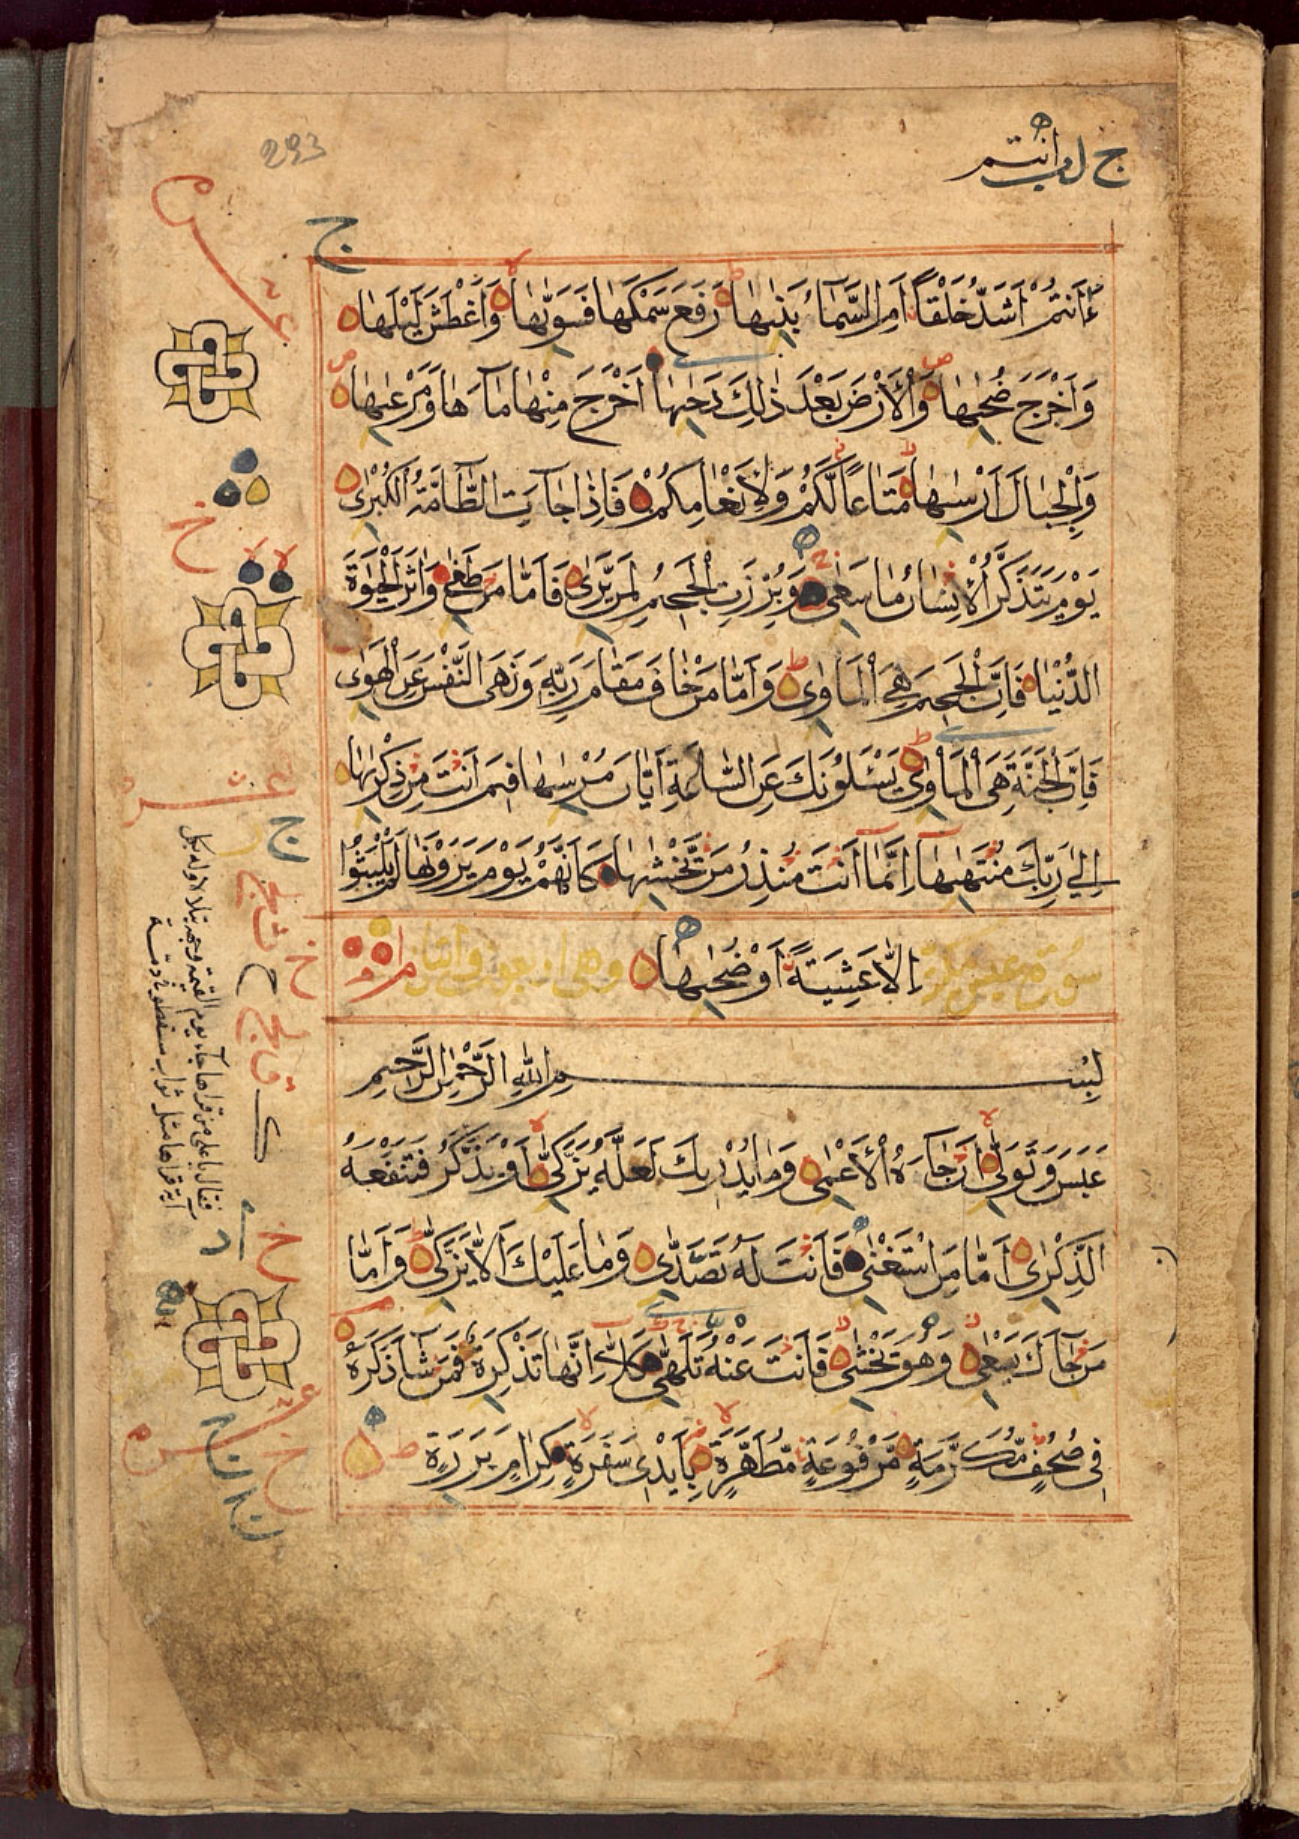 293
ءَاَنتُمْ اَشَدُّ خَلْقًا اَمِ السَّمَاءُ بَنٰىهَا رَفَعَ سَمْكَهَا فَسَوّٰىهَا وَاَغْطَشَ لَيْلَهَا
وَاَخْرَجَ ضُحٰىهَا وَالْاَرْضَ بَعْدَ ذٰلِكَ دَحٰىهَا اَخْرَجَ مِنْهَا مَآءَهَا وَمَرْعٰىهَا
وَالْجِبَالَ اَرْسٰىهَا مَتَاعًا لَّكُمْ وَلِاَنْعَامِكُمْ فَاِذَا جَآءَتِ الطَّآمَّةُ الْكُبْرٰى
يَوْمَ يَتَذَكَّرُ الْاِنْسَانُ مَا سَعٰى وَبُرِّزَتِ الْجَحِيْمُ لِمَنْ يَّرٰى فَاَمَّا مَنْ طَغٰى وَاٰثَرَ الْحَيٰوةَ
الدُّنْيَا فَاِنَّ الْجَحِيْمَ هِيَ الْمَاْوٰى وَاَمَّا مَنْ خَافَ مَقَامَ رَبِّهِ وَنَهَى النَّفْسَ عَنِ الْهَوٰى
فَاِنَّ الْجَنَّةَ هِيَ الْمَاْوٰى يَسْئَلُوْنَكَ عَنِ السَّاعَةِ اَيَّانَ مُرْسٰىهَا فِيْمَ اَنْتَ مِنْ ذِكْرٰىهَا
اِلٰى رَبِّكَ مُنْتَهٰىهَا اِنَّمَآ اَنْتَ مُنْذِرُ مَنْ يَّخْشٰىهَا كَاَنَّهُمْ يَوْمَ يَرَوْنَهَا لَمْ يَلْبَثُوْا
سورة عبس مكية اِلَّا عَشِيَّةً اَوْ ضُحٰىهَا وهى اربعون وايتان
بِسْمِ اللّٰهِ الرَّحْمٰنِ الرَّحِيْمِ
عَبَسَ وَتَوَلّٰى اَنْ جَآءَهُ الْاَعْمٰى وَمَا يُدْرِيْكَ لَعَلَّهُ يَزَّكّٰى اَوْ يَذَّكَّرُ فَتَنْفَعَهُ
الذِّكْرٰى اَمَّا مَنِ اسْتَغْنٰى فَاَنْتَ لَهُ تَصَدّٰى وَمَا عَلَيْكَ اَلَّا يَزَّكّٰى وَاَمَّا
مَنْ جَآءَكَ يَسْعٰى وَهُوَ يَخْشٰى فَاَنْتَ عَنْهُ تَلَهّٰى كَلَّآ اِنَّهَا تَذْكِرَةٌ فَمَنْ شَآءَ ذَكَرَهُ
فِى صُحُفٍ مُّكَرَّمَةٍ مَّرْفُوْعَةٍ مُّطَهَّرَةٍ بِاَيْدِى سَفَرَةٍ كِرَامٍ بَرَرَةٍ